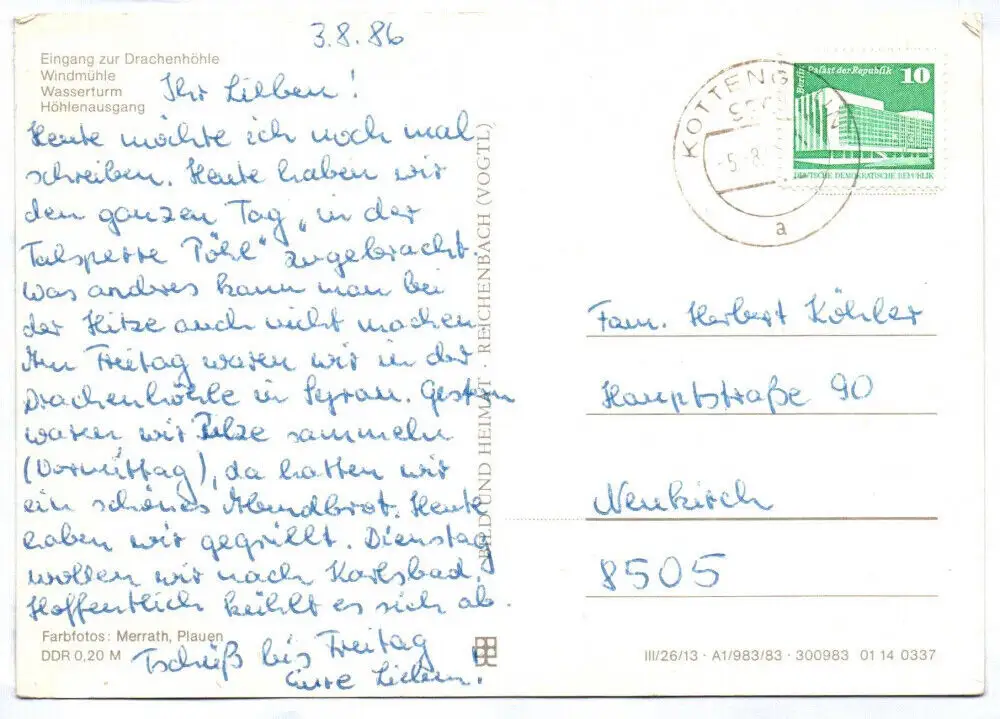 3.8.86
Eingang zur Drachenhöhle
Windmühle
Wasserturm
Höhlenausgang
Ihr Lieben!
Heute möchte ich noch mal
schreiben. Heute haben wir
den ganzen Tag „in der
Talsperre Pöhl" zugebracht.
Was anderes kann man bei
der Hitze auch nicht machen
Am Freitag waren wir in der
Drachenhöhle in Syrau. Gestern
waren wir Pilze sammeln
(Vormittag), da hatten wir
ein schönes Abendbrot. Heute
haben wir gegrillt. Dienstag
wollen wir nach Karlsbad.
Hoffentlich kühlt es sich ab.
Tschüß bis Freitag
Eure Lieben.
Farbfotos: Merrath, Plauen
DDR 0,20 M
BILD UND HEIMAT · REICHENBACH (VOGTL)
KOTTENG
-5.-8.
a
Berlin, Palast der Republik
10
DEUTSCHE DEMOKRATISCHE REPUBLIK
Fam. Herbert Köhler
Hauptstraße 90
Neukirch
8505
III/26/13 · A1/983/83 · 300983 01 14 0337